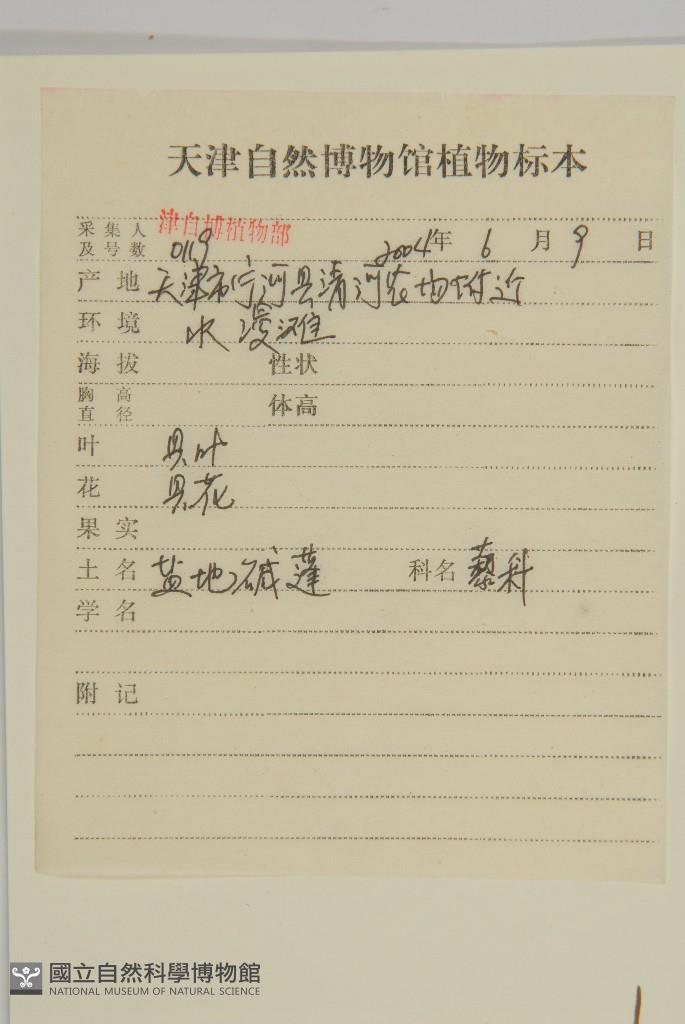 天津自然博物馆植物标本
采集人及号数 津自博植物部 0119 2004年 6月 9日
产地 天津市宁河县清河农场附近
环境 水漫滩
海拔 性状
胸高直径 体高
叶 具叶
花 具花
果实
土名 盐地碱蓬 科名 藜科
学名
附记
國立自然科學博物館
NATIONAL MUSEUM OF NATURAL SCIENCE